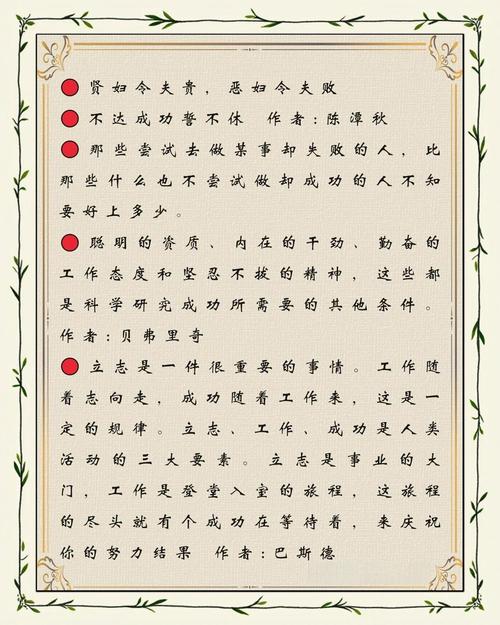 贤妇令夫贵，恶妇令夫败
不达成功誓不休 作者：陈潭秋
那些尝试去做某事却失败的人，比
那些什么也不尝试做却成功的人不知
要好上多少。
聪明的资质、内在的干劲、勤奋的
工作态度和坚忍不拔的精神，这些都
是科学研究成功所需要的其他条件。
作者：贝弗里奇
立志是一件很重要的事情。工作随
着志向走，成功随着工作来，这是一
定的规律。立志、工作、成功是人类
活动的三大要素。立志是事业的大
门，工作是登堂入室的旅程，这旅程
的尽头就有个成功在等待着，来庆祝
你的努力结果 作者：巴斯德